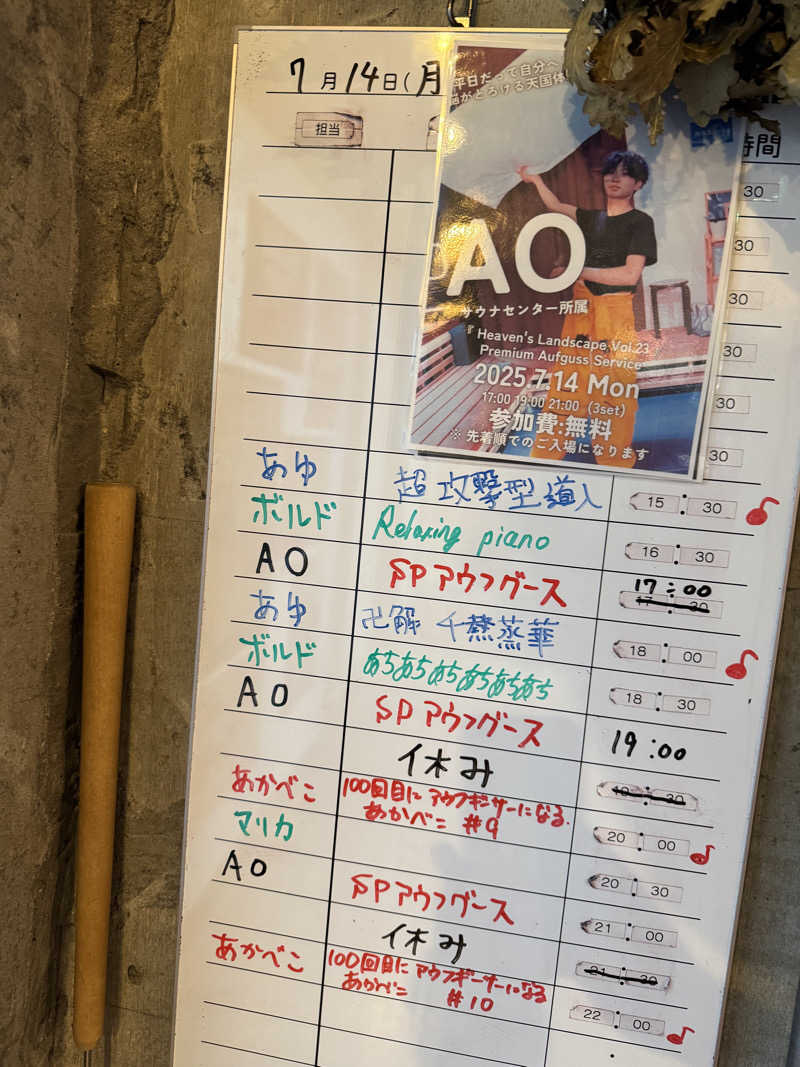 7月14日(月
担当
時間
平日だって自分へ
脳がとろける天国体
AO
サウナセンター所属
『Heaven's Landscape Vol.23
Premium Aufguss Service
2025.7.14 Mon
17:00 19:00 21:00 (3set)
参加費:無料
※ 先着順でのご入場になります
30
30
30
30
30
30
あゆ 超攻撃型導入 15:30
ボルド Relaxing piano 16:30
AO SPアウフグース 17:00
17:30
あゆ 卍解 千蒸蒸華 18:00
ボルド あちあちあちあちあちあち 18:30
AO SPアウフグース 19:00
休み 19:30
あかべこ 100回目にアウフギーサーになる 20:00
あかべこ #9
マリカ 20:30
AO SPアウフグース 21:00
休み 21:30
あかべこ 100回目にアウフギーサーになる 22:00
あかべこ #10